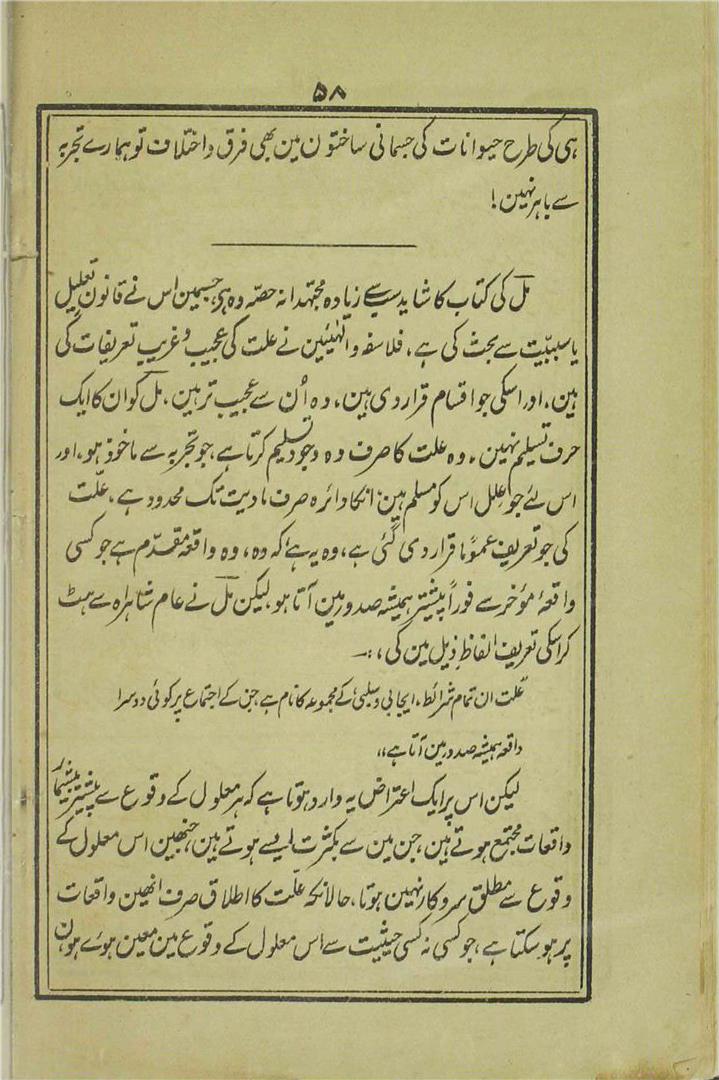 ۵۸
ہی کی طرح حیوانات کی جسمانی ساختون مین بھی فرق و اختلاف تو ہمارے تجربہ
سے باہر نہین!
مل کی کتاب کا شاید سب سے زیادہ مجتہدانہ حصّہ وہ ہی جسمین اس نے قانون تعلیل
یا سببیّت سے بحث کی ہے، فلاسفہ و الٰہیئین نے علت کی عجیب و غریب تعریفات کی
ہین، اور اسکی جو اقسام قرار دی ہین، وہ اُن سے عجیب تر ہین، مل کو ان کا ایک
حرف تسلیم نہین۔ وہ علت کا صرف وہ وجود تسلیم کرتا ہے، جو تجربہ سے ماخوذ ہو، اور
اس لئے جو عِلل اس کو مسلم ہین، انکا دائرہ صرف مادیت تک محدود ہے، علّت
کی جو تعریف عمومًا قرار دی گئی ہے، وہ یہ ہے کہ وہ، وہ واقعہ مقدّم ہے جو کسی
واقعۂ مؤخر سے فوراً پیشتر ہمیشہ صدور مین آتا ہو، لیکن مل نے عام شاہراہ سے ہٹ
کر اسکی تعریف الفاظِ ذیل مین کی،:۔
”علت ان تمام شرائط، ایجابی و سلبی، کے مجموعہ کا نام ہے، جن کے اجتماع پر کوئی دوسرا
واقعہ ہمیشہ صدور مین آتا ہے“
لیکن اس پر ایک اعتراض یہ وارد ہوتا ہے کہ ہر معلول کے وقوع سے پیشتر بیشمار
واقعات مجتمع ہوتے ہین، جن مین سے بکثرت ایسے ہوتے ہین، جنھین اس معلول کے
وقوع سے مطلق سروکار نہین ہوتا، حالانکہ علّت کا اطلاق صرف انھین واقعات
پر ہو سکتا ہے، جو کسی نہ کسی حیثیت سے اس معلول کے وقوع مین معین ہوئے ہون